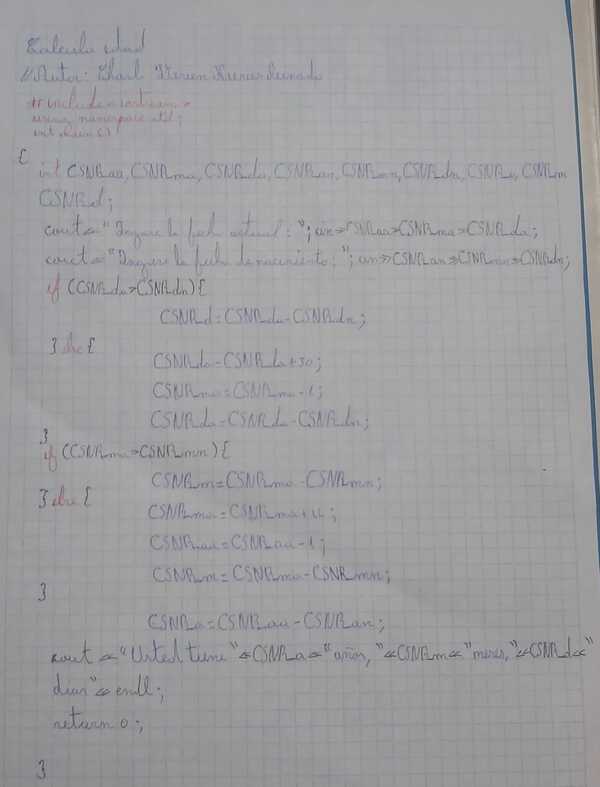 Calcula edad
// Autor:
# include <iostream>
using namespace std;
int main ()
{
int CSNR_aa, CSNR_ma, CSNR_da, CSNR_an, CSNR_mn, CSNR_dn, CSNR_a, CSNR_m
CSNR_d;
cout << "Ingrese la fecha actual: "; cin >> CSNR_aa >> CSNR_ma >> CSNR_da;
cout << "Ingrese la fecha de nacimiento: "; cin >> CSNR_an >> CSNR_mn >> CSNR_dn;
if (CSNR_da > CSNR_dn) {
CSNR_d = CSNR_da - CSNR_dn;
} else {
CSNR_da = CSNR_da + 30;
CSNR_ma = CSNR_ma - 1;
CSNR_da = CSNR_da - CSNR_dn;
}
if (CSNR_ma > CSNR_mn) {
CSNR_m = CSNR_ma - CSNR_mn;
} else {
CSNR_ma = CSNR_ma + 12;
CSNR_aa = CSNR_aa - 1;
CSNR_m = CSNR_ma - CSNR_mn;
}
CSNR_a = CSNR_aa - CSNR_an;
cout << "Usted tiene" << CSNR_a << "años, " << CSNR_m << "meses, " << CSNR_d << "
dias" << endl;
return 0;
}